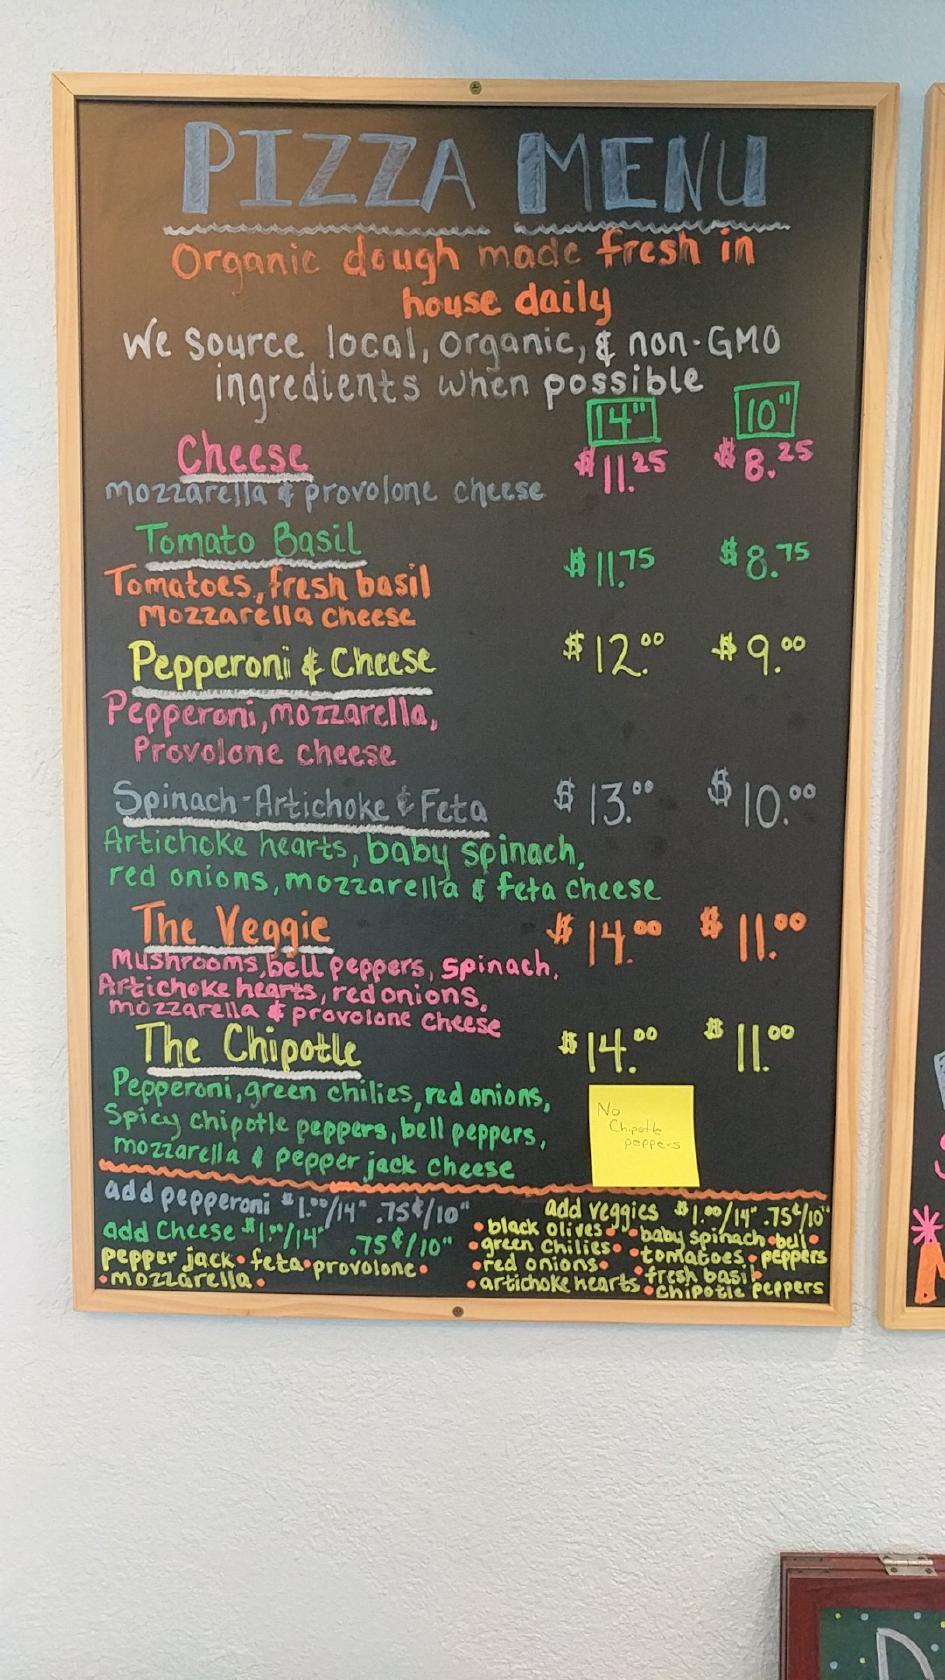 PIZZA MENU
Organic dough made fresh in
house daily
We source local, organic, & non-GMO
ingredients when possible
14" 10"
Cheese $11.25 $8.25
mozzarella & provolone cheese
Tomato Basil $11.75 $8.75
Tomatoes, fresh basil
Mozzarella cheese
Pepperoni & Cheese $12.00 $9.00
Pepperoni, mozzarella,
Provolone cheese
Spinach-Artichoke & Feta $13.00 $10.00
Artichoke hearts, baby spinach,
red onions, mozzarella & feta cheese
The Veggie $14.00 $11.00
Mushrooms, bell peppers, spinach,
Artichoke hearts, red onions,
mozzarella & provolone cheese
The Chipotle $14.00 $11.00
Pepperoni, green chilies, red onions,
Spicy chipotle peppers, bell peppers,
mozzarella & pepper jack cheese
No
Chipotle
peppers
add pepperoni $1.00/14" .75¢/10"
add Cheese $1.00/14" .75¢/10"
pepper jack • feta • provolone •
• mozzarella •
add veggies $1.00/14" .75¢/10"
• black olives • • baby spinach • bell •
• green chilies • • tomatoes • peppers
• red onions • • fresh basil •
• artichoke hearts • chipotle peppers